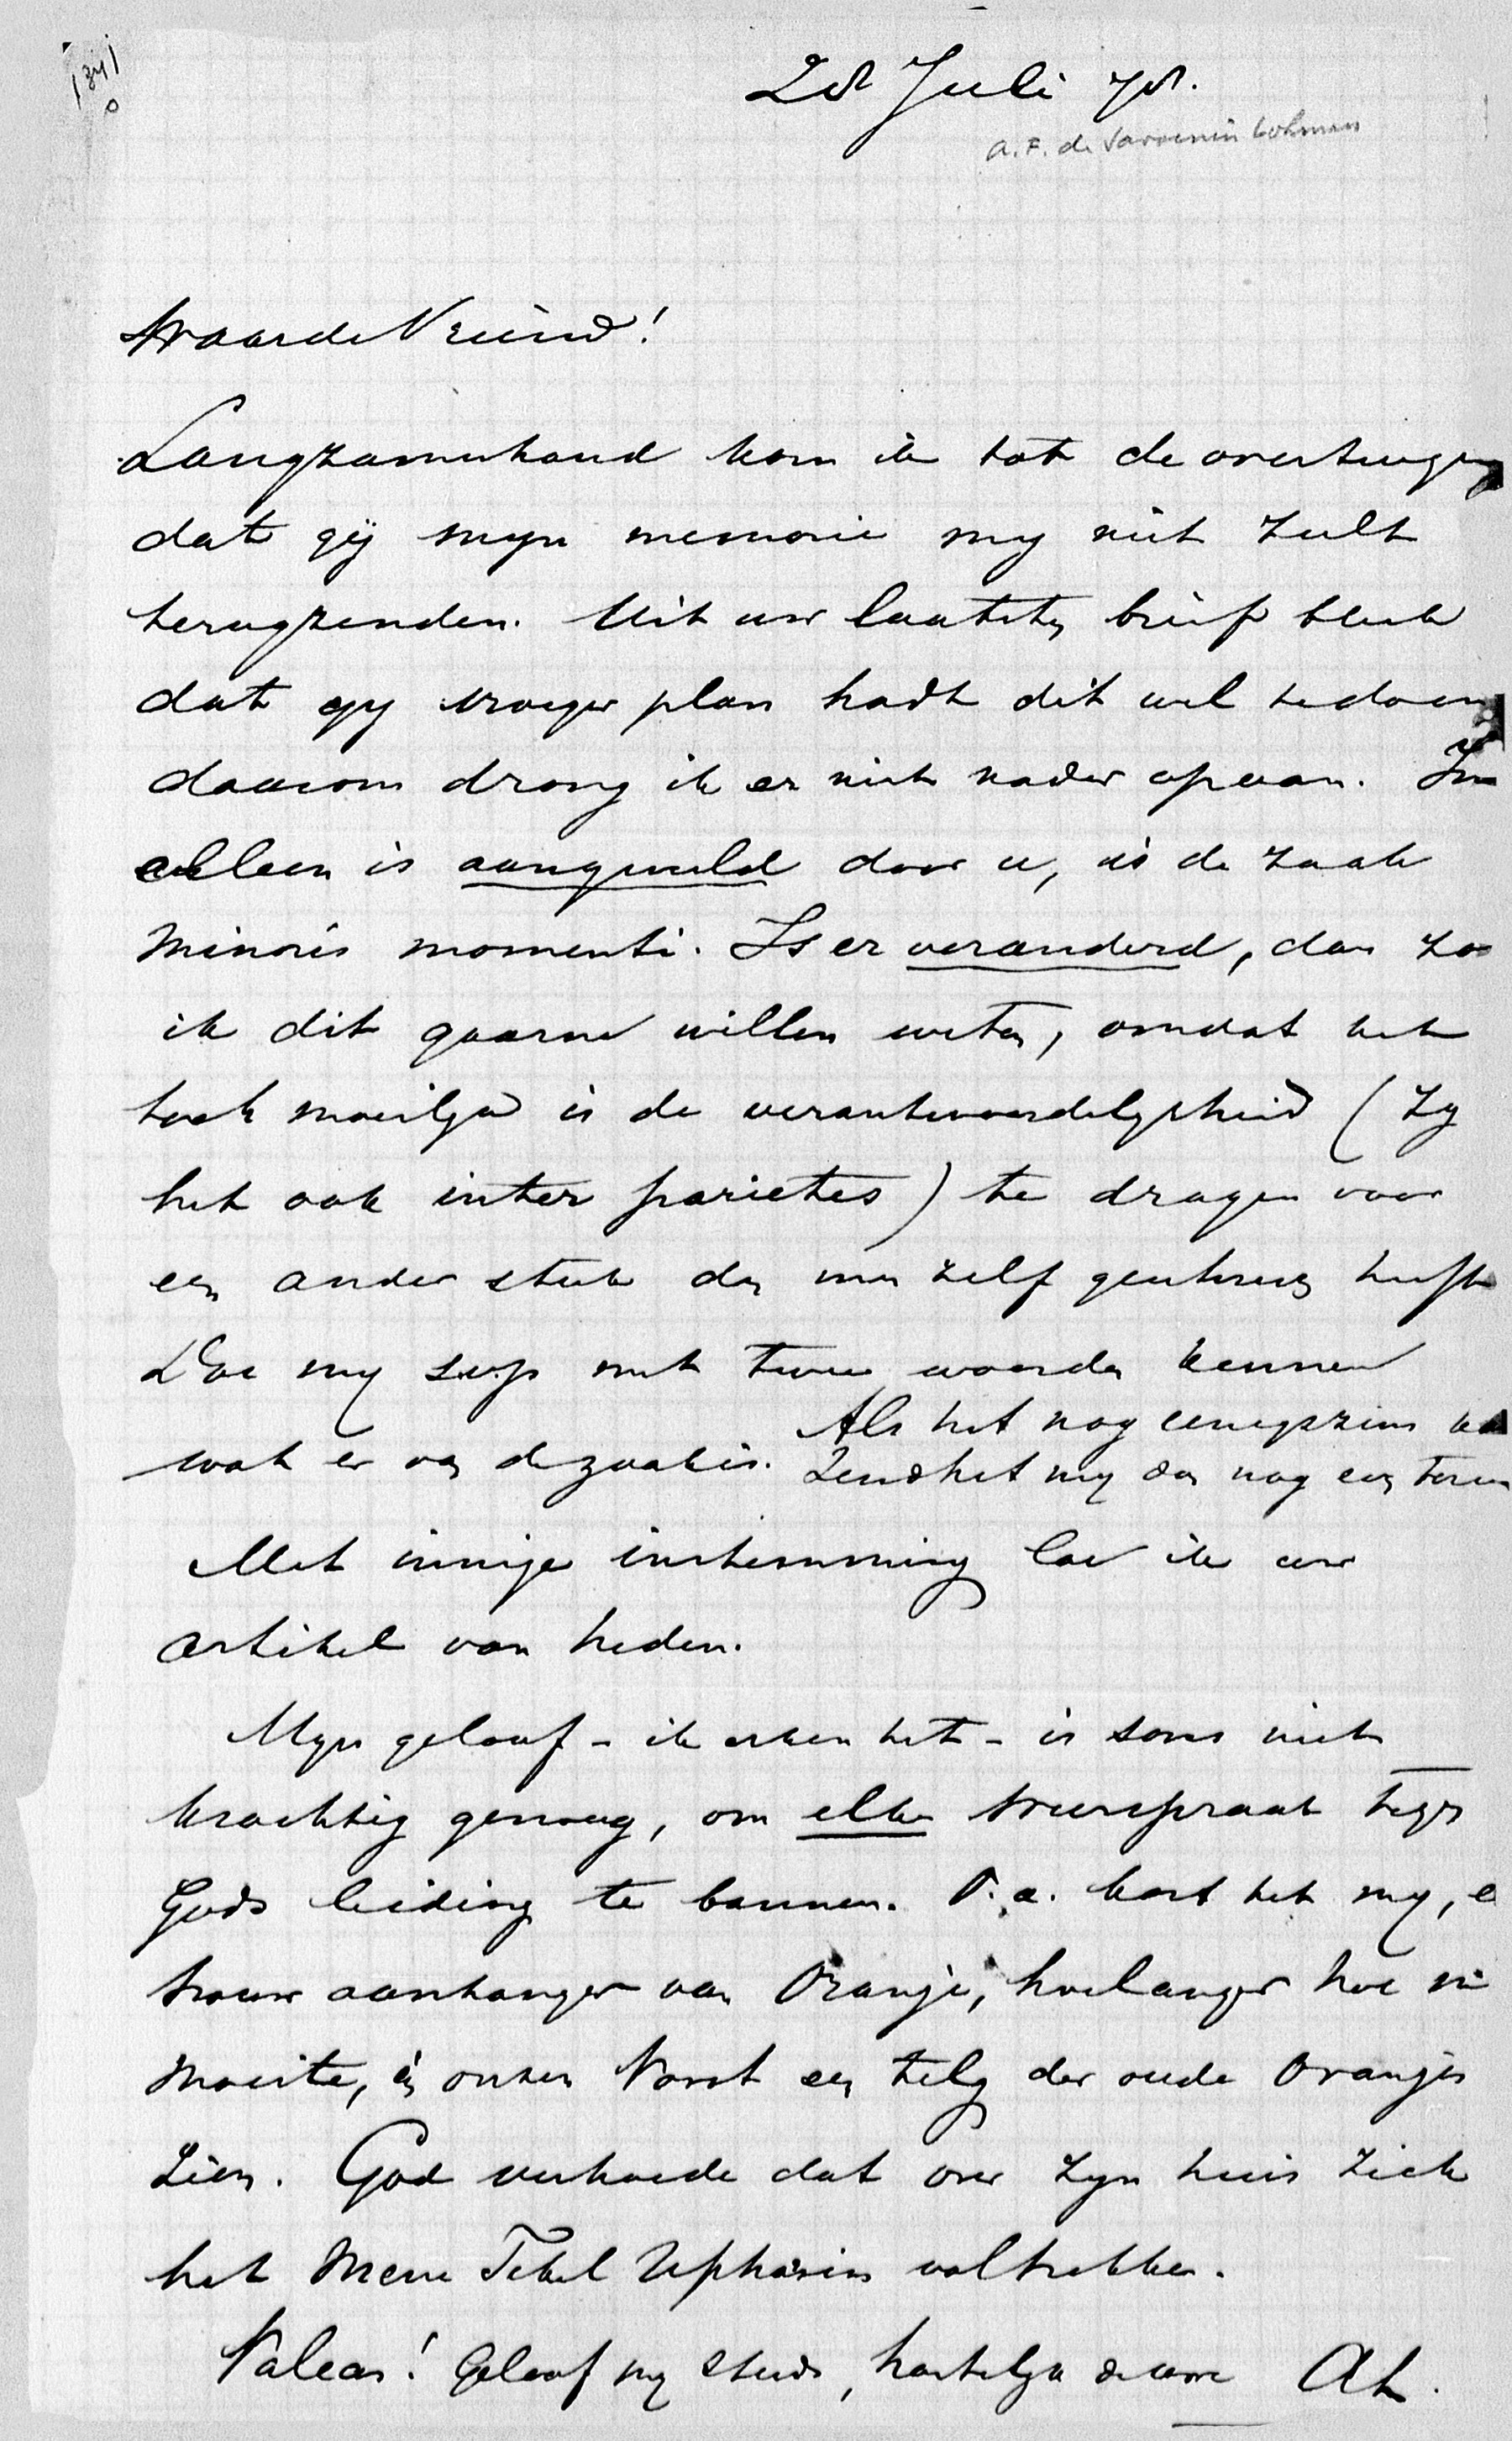 1341
0
28 Juli 78.
A.F. de Savornin Lohman
Waarde Vriend!
Langzamerhand kom ik tot de overtuiging
dat gij myn memorie my niet zult
terugzenden. Uit uw laatsten brief bleek
dat gy vroeger plan hadt dit wel te doen
daarom drong ik er niet nader op aan. In
alleen is aangevuld door u, is de zaak
minoris momenti. Is er veranderd, dan zo
ik dit gaarne willen weten, omdat het
toch moeilyk is de verantwoordelykheid (zy
het ook inter parietes) te dragen voor
een ander stuk dan men zelf geschreven heeft
Doe my svp met twee woorden kennen
wat er van de zaak is. Als het nog eenigszins ka
Zend het my dan nog eens terug
Met innige instemming las ik uw
artikel van heden.
Myn geloof - ik erken het - is soms niet
krachtig genoeg, om elke weerspraak tegen
Gods leiding te bannen. O.a. kost het my, e
trouw aanhanger van Oranje, hoelanger hoe m
moeite, in onzen Vorst een telg der oude Oranjes
zien. God verhoede dat over zyn huis zich
het Mene Tekel Upharsin voltrekke.
Valeas! Geloof my steeds, hartelyk de uwe AL.